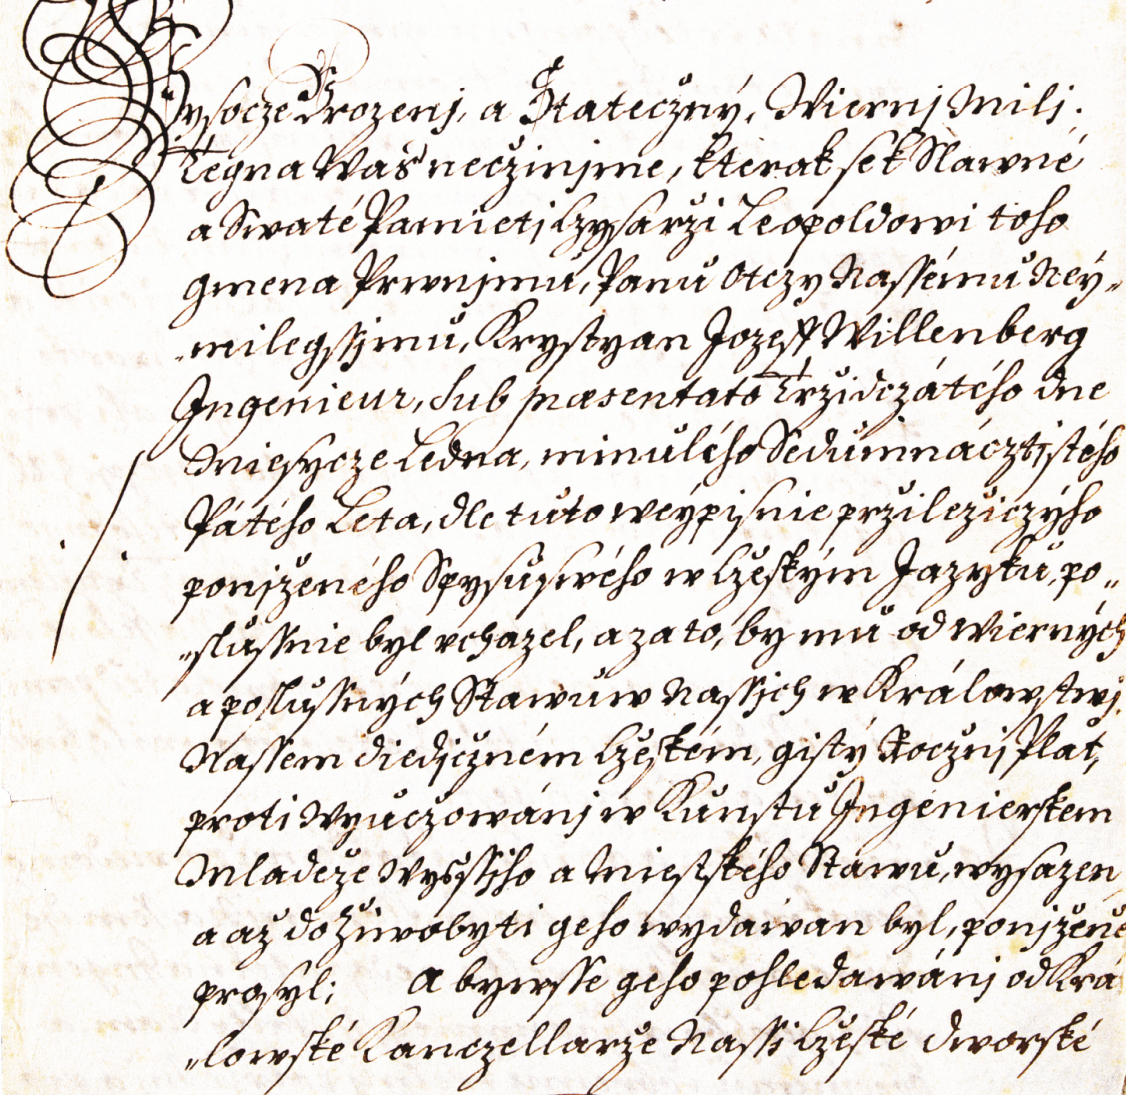 Wysocze Urozenj, a Statečzný, Wiernj Milj.
Tegna Wás nečzinjme, kterak se k Slawné
a Swaté Pamieti Czysarži Leopoldowi toho
gmena Prwnjmu, Panu Otczy Nassemu Ney„
„milegssjmu, Krystyan Jozeff Willenberg
Ingenieur, sub præsentato Tržidczátého dne
Miesycze Ledna, minulého Sedumnácztistého
Pátého Leta, dle tuto weypisnie pržiležiczýho
ponjženého Spysu swého w Czeským Jazyku, po„
„slussnie byl uchazel, a za to, by mu od Wierných
a poslussných Stawuw Nassich w Králowstwj
Nassem diedjčzném Czeském, gistý Rocžnj Plat,
proti Wyučzowánj w Kunstu Ingenierskem
Mladeže Wyšssjho a Miestského Stawu, wysazen
a až do živobyti geho wydáwan byl, ponjžene
prosyl; A bywsse geho pohledawánj od Krá
„lowské Kanczellarže Nassj Czeské dworské